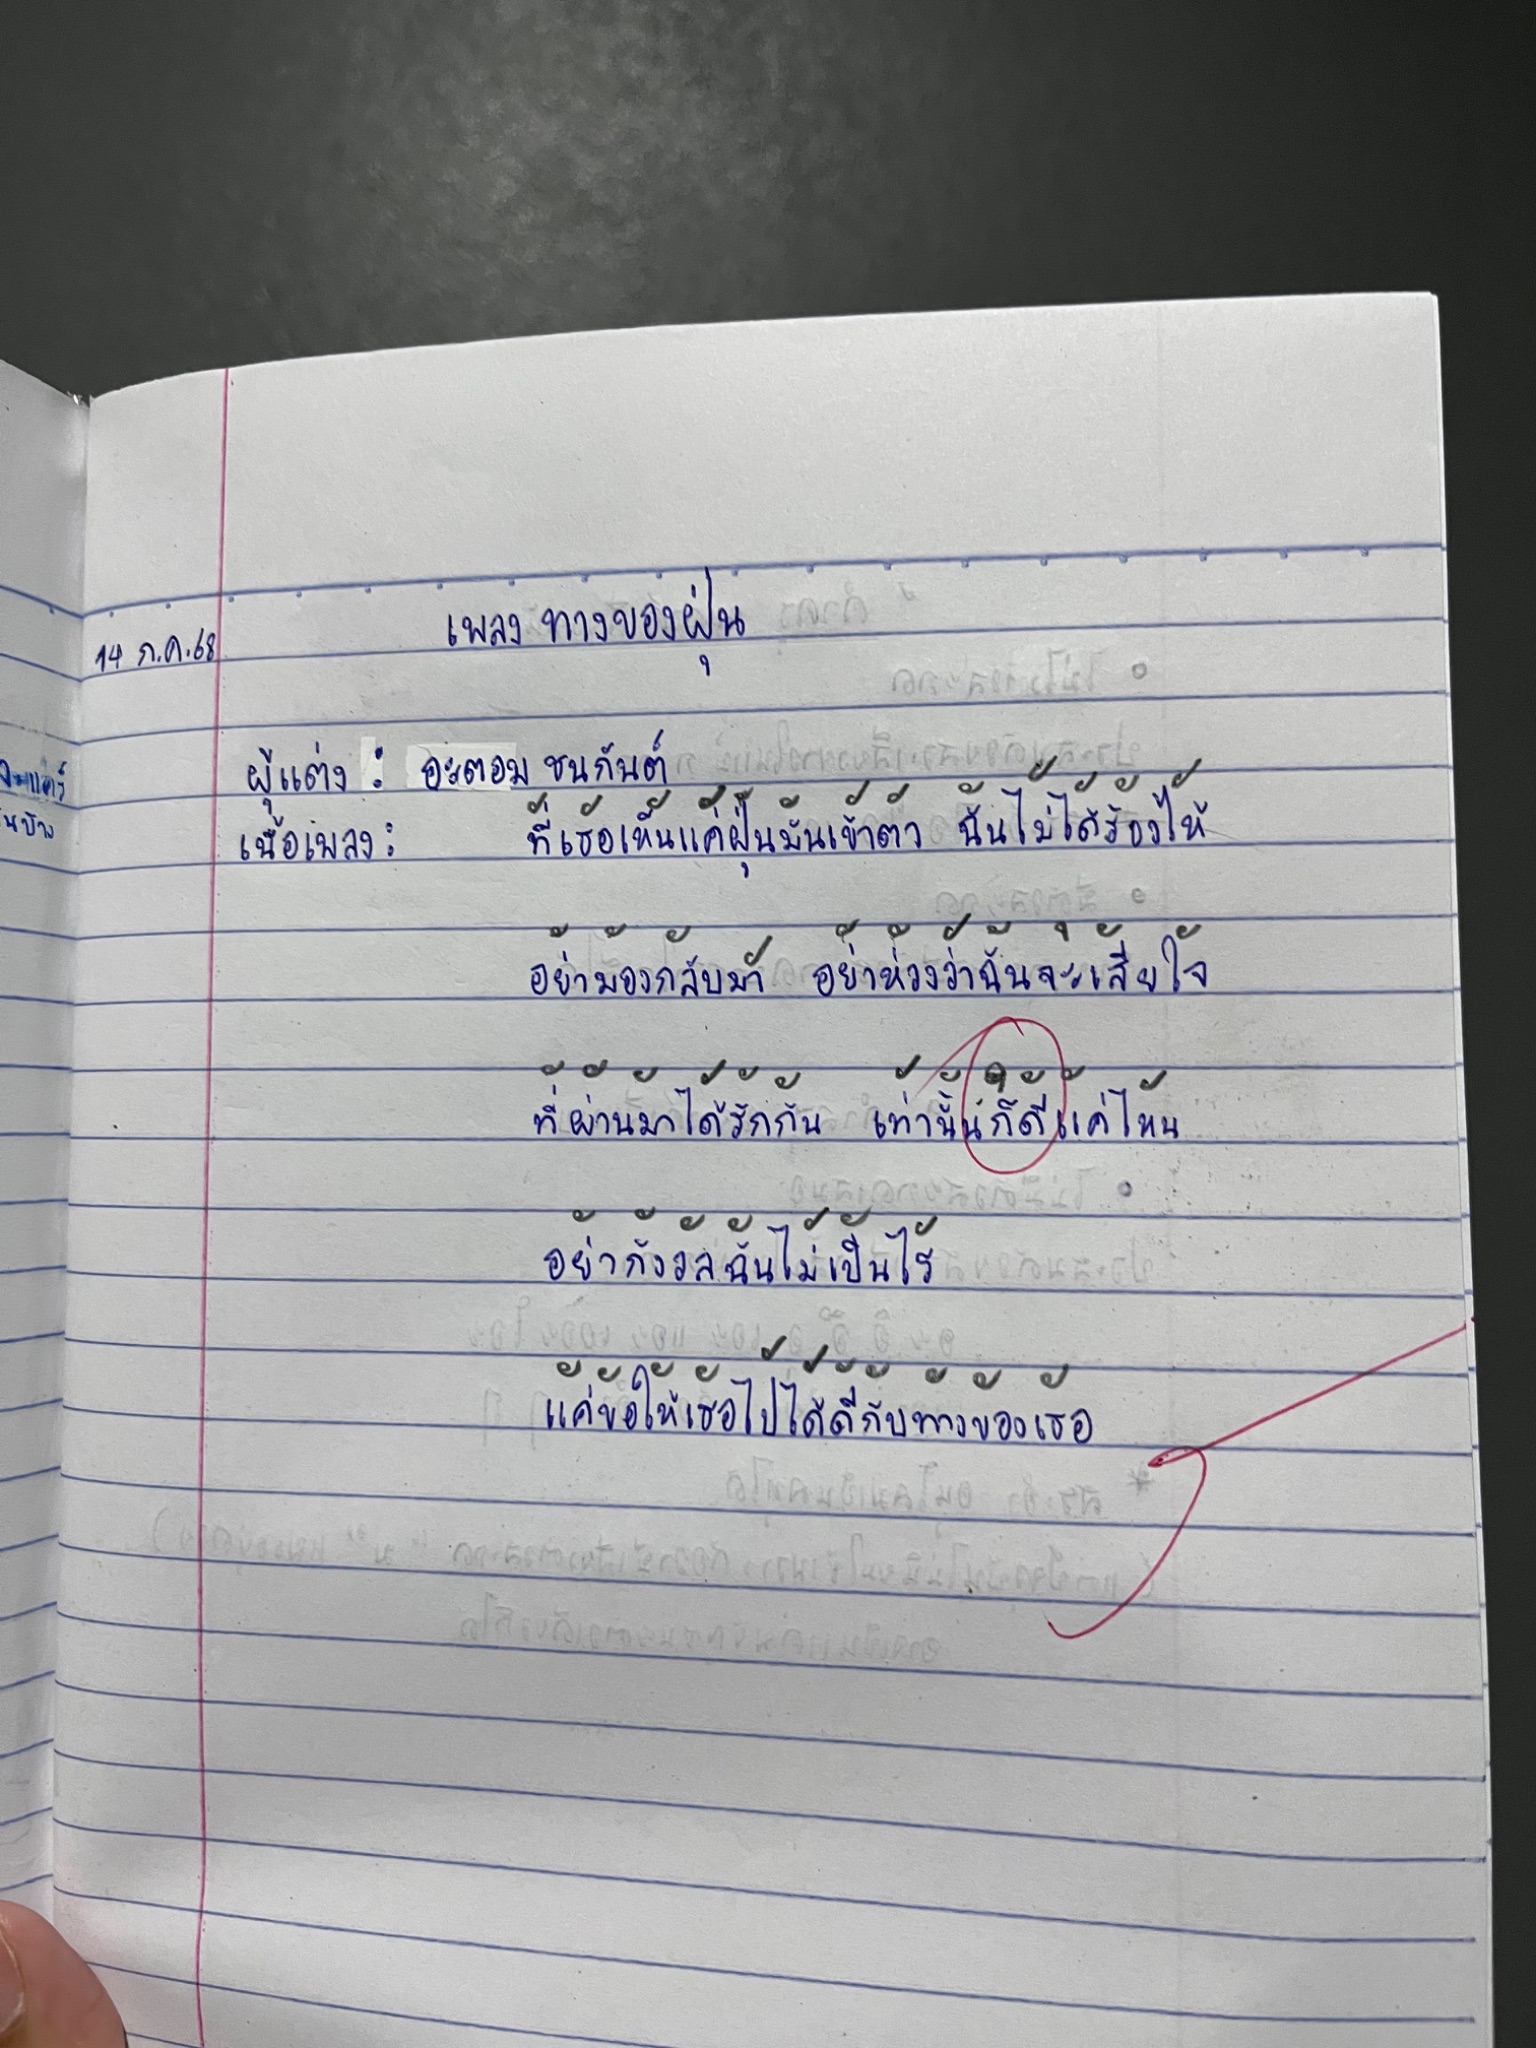 เพลง ทางของฝุ่น
14 ก.ค. 68
ผู้แต่ง : อะตอม ชนกันต์
เนื้อเพลง : ที่เธอเห็นแค่ฝุ่นมันเข้าตา ฉันไม่ได้ร้องไห้
อย่ามองกลับมา อย่าห่วงว่าฉันจะเสียใจ
ที่ผ่านมาได้รักกัน เท่านั้นก็ดีแค่ไหน
อย่ากังวลฉันไม่เป็นไร
แค่ขอให้เธอไปได้ดีกับทางของเธอ